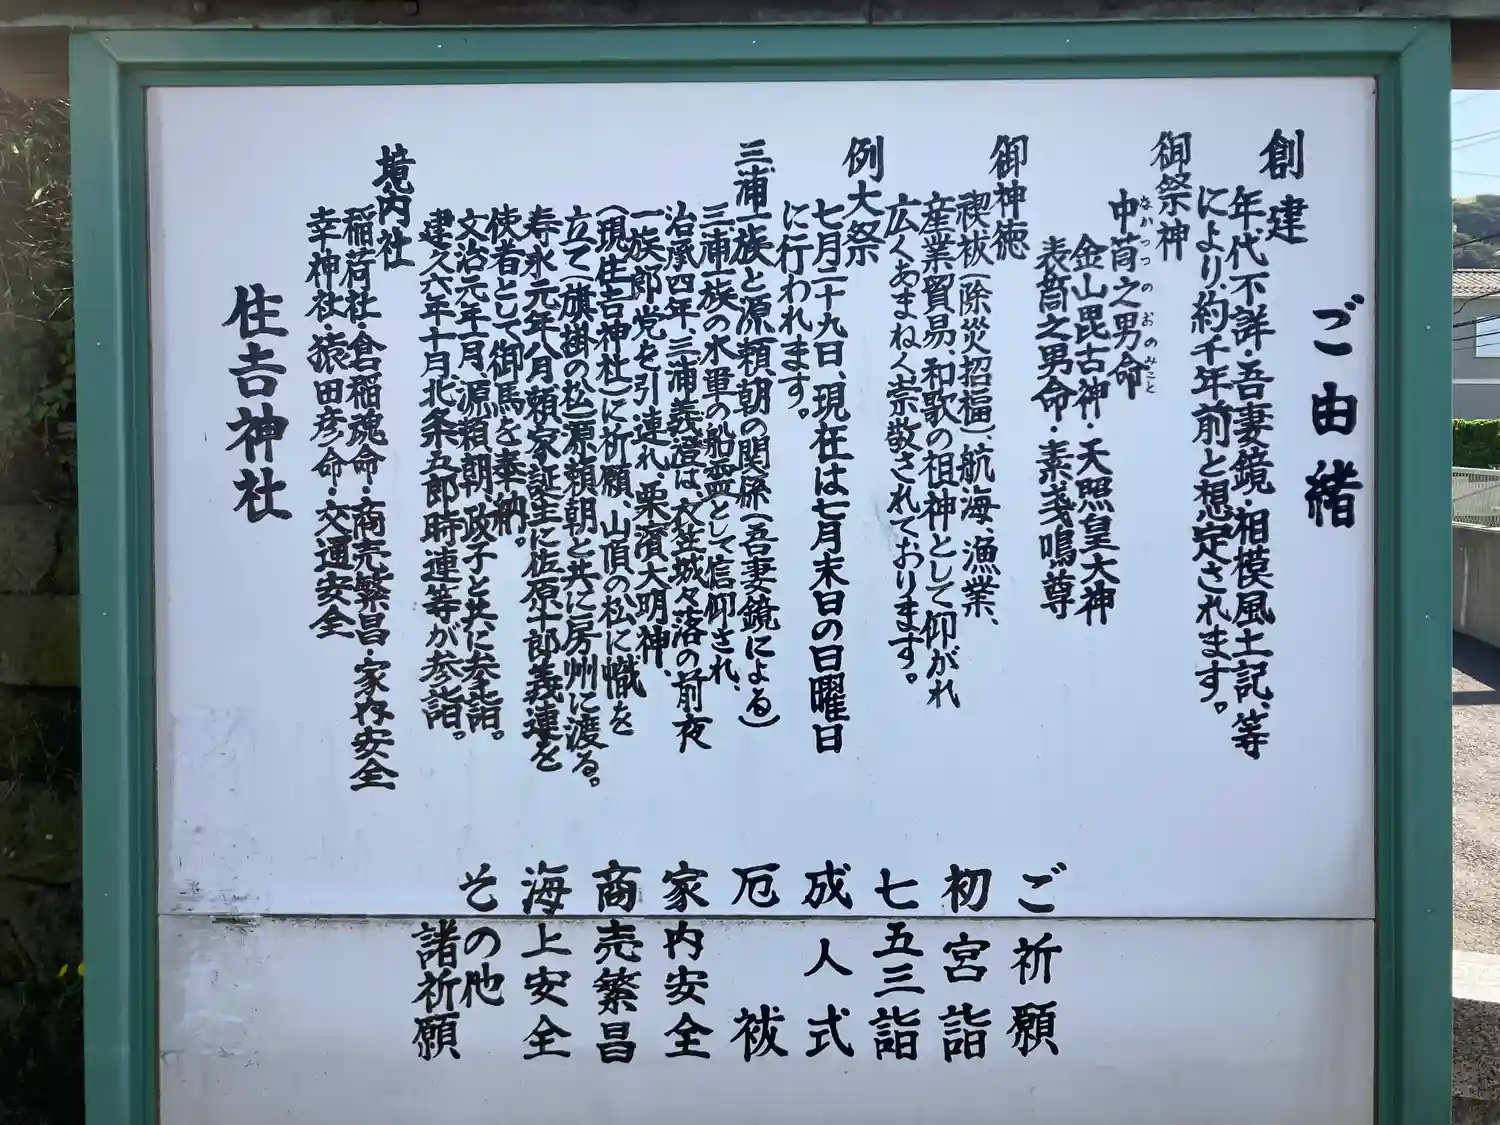 ご由緒
創建
年代不詳・吾妻鏡・相模風土記、等
により、約千年前と想定されます。
御祭神
中筒之男命
なかつつのおのみこと
金山毘古神・天照皇大神
表筒之男命・素戔鳴尊
御神徳
禊祓(除災招福)、航海、漁業、
産業貿易、和歌の祖神として仰がれ
広くあまねく崇敬されております。
例大祭
七月二十九日、現在は七月末日の日曜日
に行われます。
三浦一族と源頼朝の関係(吾妻鏡による)
三浦一族の水軍の船霊として信仰され、
治承四年、三浦義澄は、衣笠城々落の前夜
一族郎党を引連れ、栗濱大明神、
(現住吉神社)に祈願、山頂の松に幟を
立て(旗掛の松)源頼朝と共に房州に渡る。
寿永元年八月、頼家誕生に佐原十郎義連を
使者として御馬を奉納。
文治元年一月、源頼朝、政子と共に参詣。
建久六年十月北条五郎時連等が参詣。
境内社
稲荷社・倉稲魂命・商売繁昌・家内安全
幸神社・猿田彦命・交通安全
住吉神社
ご祈願
初宮詣
七五三詣
成人式
厄祓
家内安全
商売繁昌
海上安全
その他
諸祈願